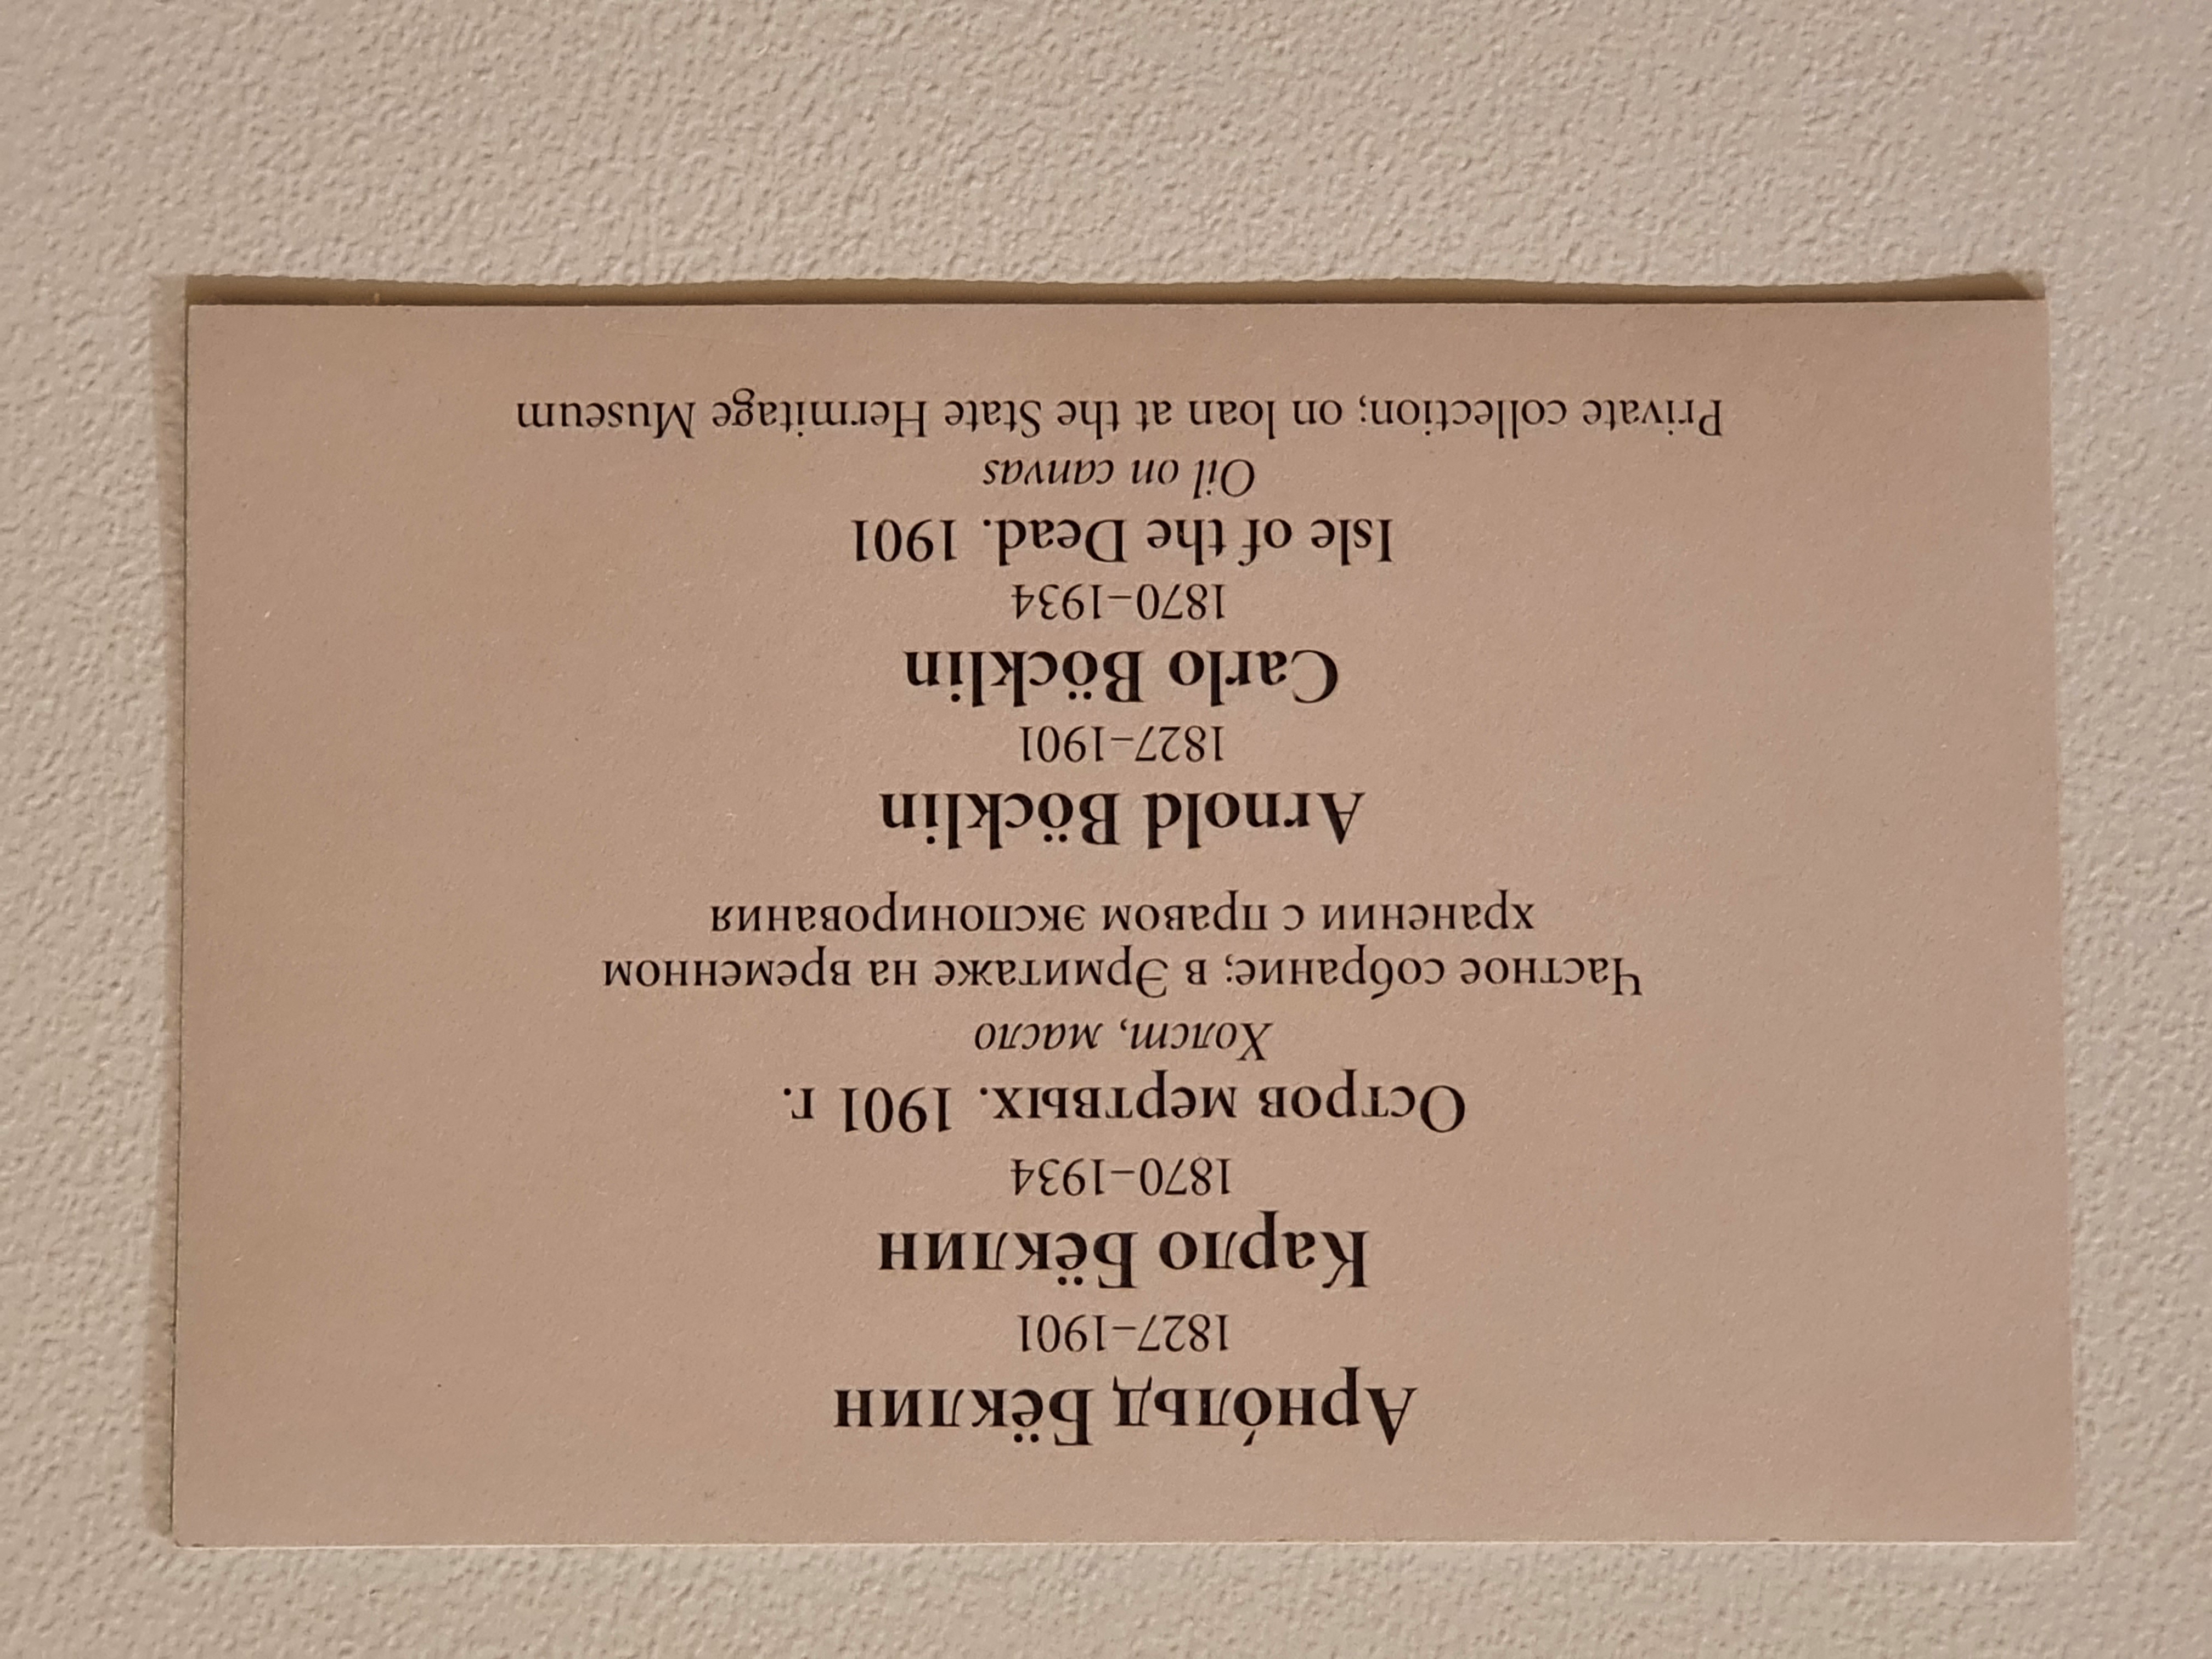 Арно́льд Бёклин
1827–1901
Карло Бёклин
1870–1934
Остров мертвых. 1901 г.
Холст, масло
Частное собрание; в Эрмитаже на временном
хранении с правом экспонирования
Arnold Böcklin
1827–1901
Carlo Böcklin
1870–1934
Isle of the Dead. 1901
Oil on canvas
Private collection; on loan at the State Hermitage Museum